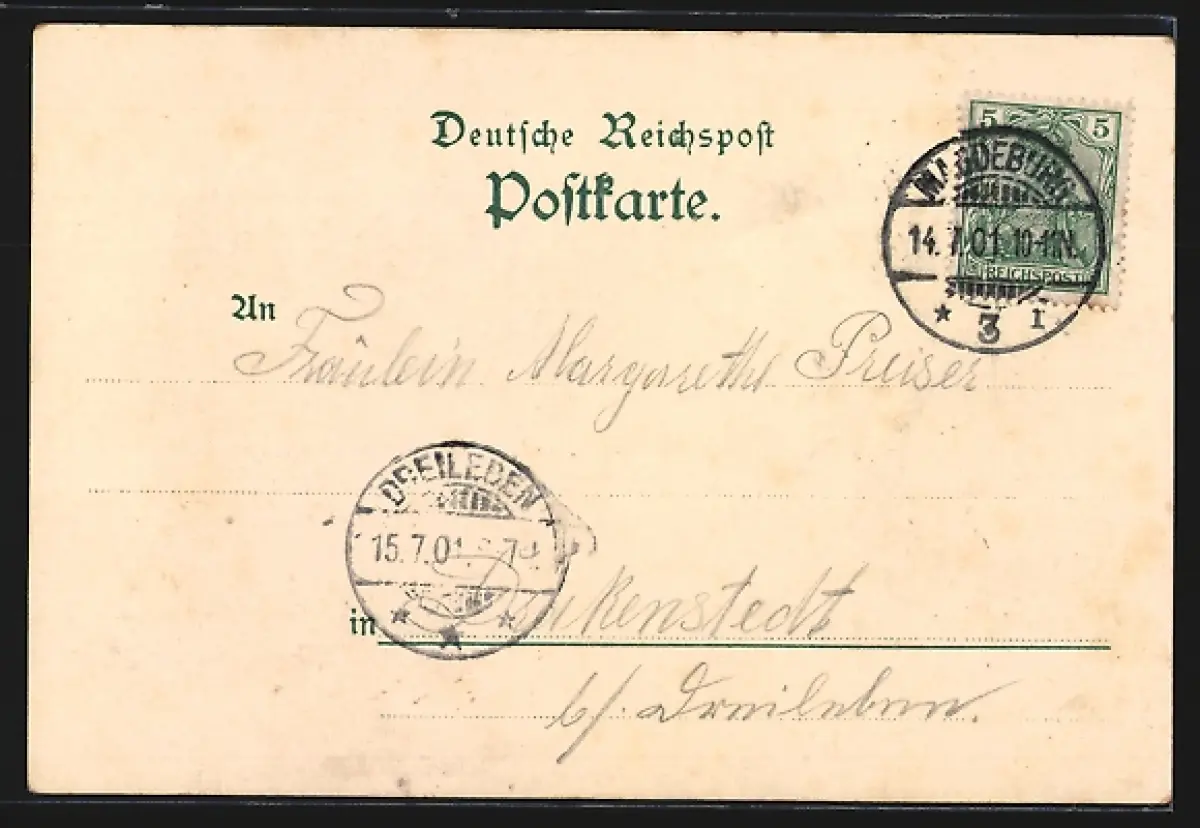 Deutsche Reichspost
Postkarte.
5 5
REICHSPOST
MAGDEBURG
14.7.01.10-11N.
* 3 I
An Fräulein Margarethe Preiser
DREILEBEN
15.7.01
in Drukenstedt
b/. Dreileben.